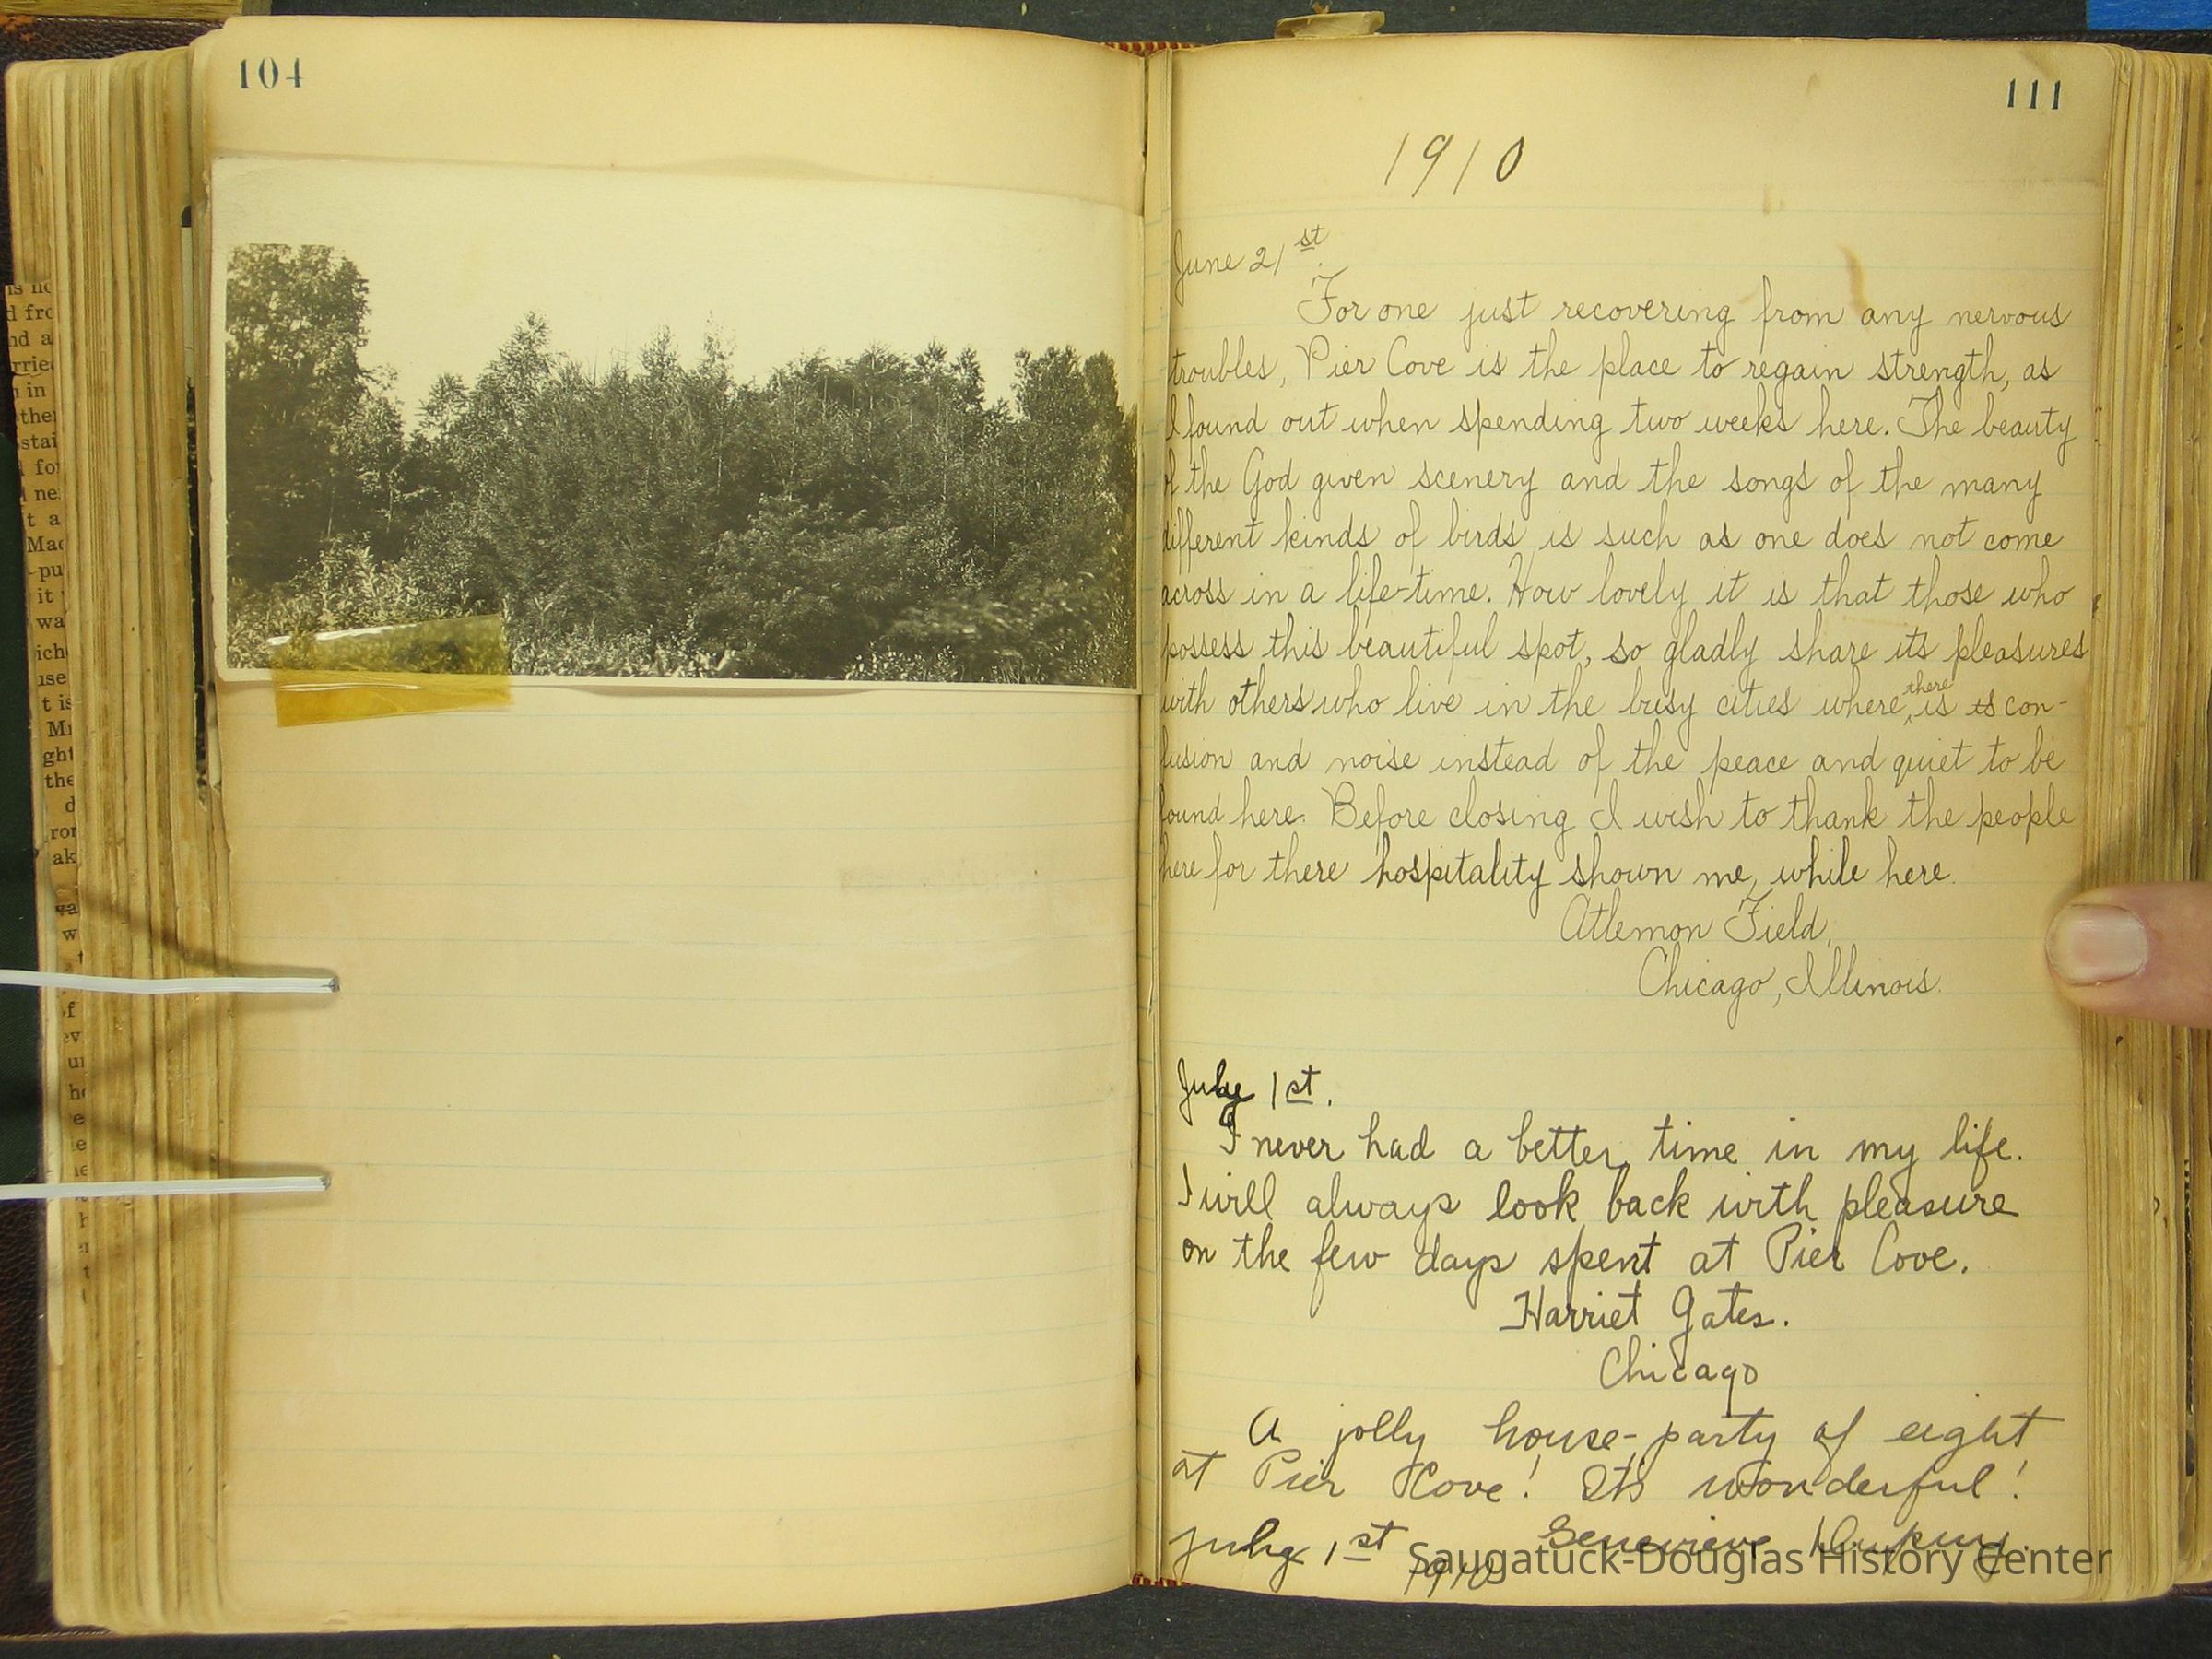 104
111
1910
June 21st.
For one just recovering from any nervous
troubles, Pier Cove is the place to regain strength, as
I found out when spending two weeks here. The beauty
of the God given scenery and the songs of the many
different kinds of birds is such as one does not come
across in a life-time. How lovely it is that those who
possess this beautiful spot, so gladly share its pleasures
with others who live in the busy cities where there is is con-
fusion and noise instead of the peace and quiet to be
found here. Before closing I wish to thank the people
here for there hospitality shown me, while here.
Atlemon Field,
Chicago, Illinois.
July 1st.
I never had a better time in my life.
I will always look back with pleasure
on the few days spent at Pier Cove.
Harriet Gates.
Chicago
A jolly house-party of eight
at Pier Cove! It's wonderful!
July 1st Genevieve
1910
Saugatuck-Douglas History Center